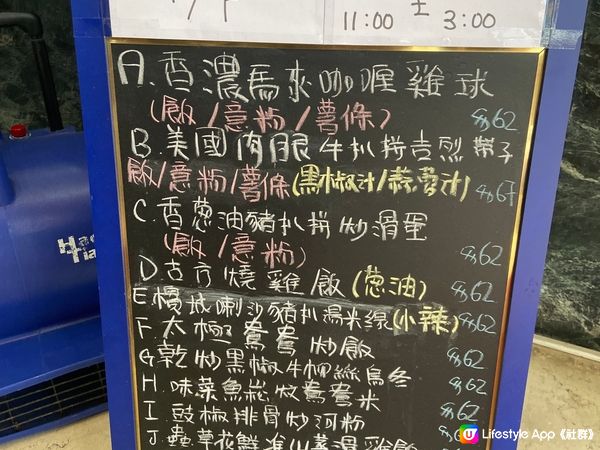 11:00 至 3:00
A.香濃馬來咖喱雞球
(飯/意粉/薯條) $62
B.美國肉眼牛扒拼吉烈帶子
飯/意粉/薯條(黑椒汁/蒜蓉汁)
C.香葱油豬扒拼炒滑蛋
(飯/意粉) $62
D.古方燒雞飯(葱油) $62
E.檳城喇沙豬扒湯米線(小辣) $62
F.太極鴛鴦炒飯 $62
G.乾炒黑椒牛柳絲烏冬 $62
H.味菜魚崧炆鴛鴦米 $62
I.豉椒排骨炒河粉 $62
J.蟲草花鮮淮山蒸滑雞飯
Lifestyle App《社群》